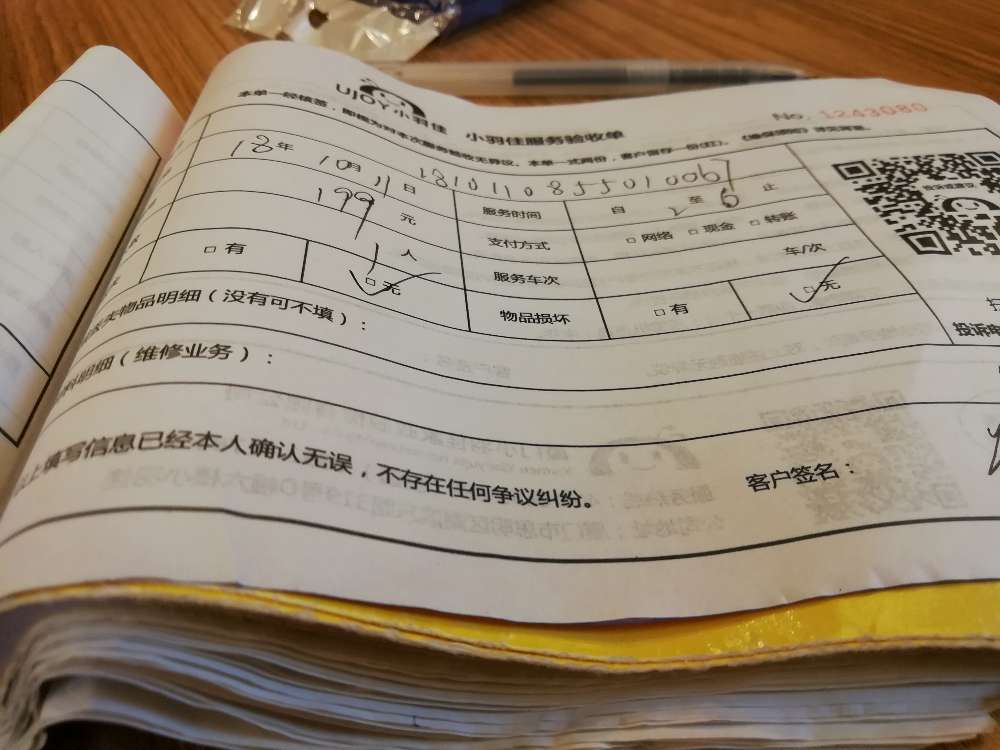 UJOY小羽佳 小羽佳服务验收单 No. 1243080
本单一经核签,即视为对本次服务验收无异议。本单一式两份,客户留存一份(红)。
18101108355010067
18年 10月 11日 服务时间 自 2 至 6 止
199 元 支付方式 □网络 □现金 □转账
1 人 服务车次 车/次
□有 □无 物品损坏 □有 □无
失物品明细(没有可不填):
料明细(维修业务):
上填写信息已经本人确认无误,不存在任何争议纠纷。 客户签名:
投诉电